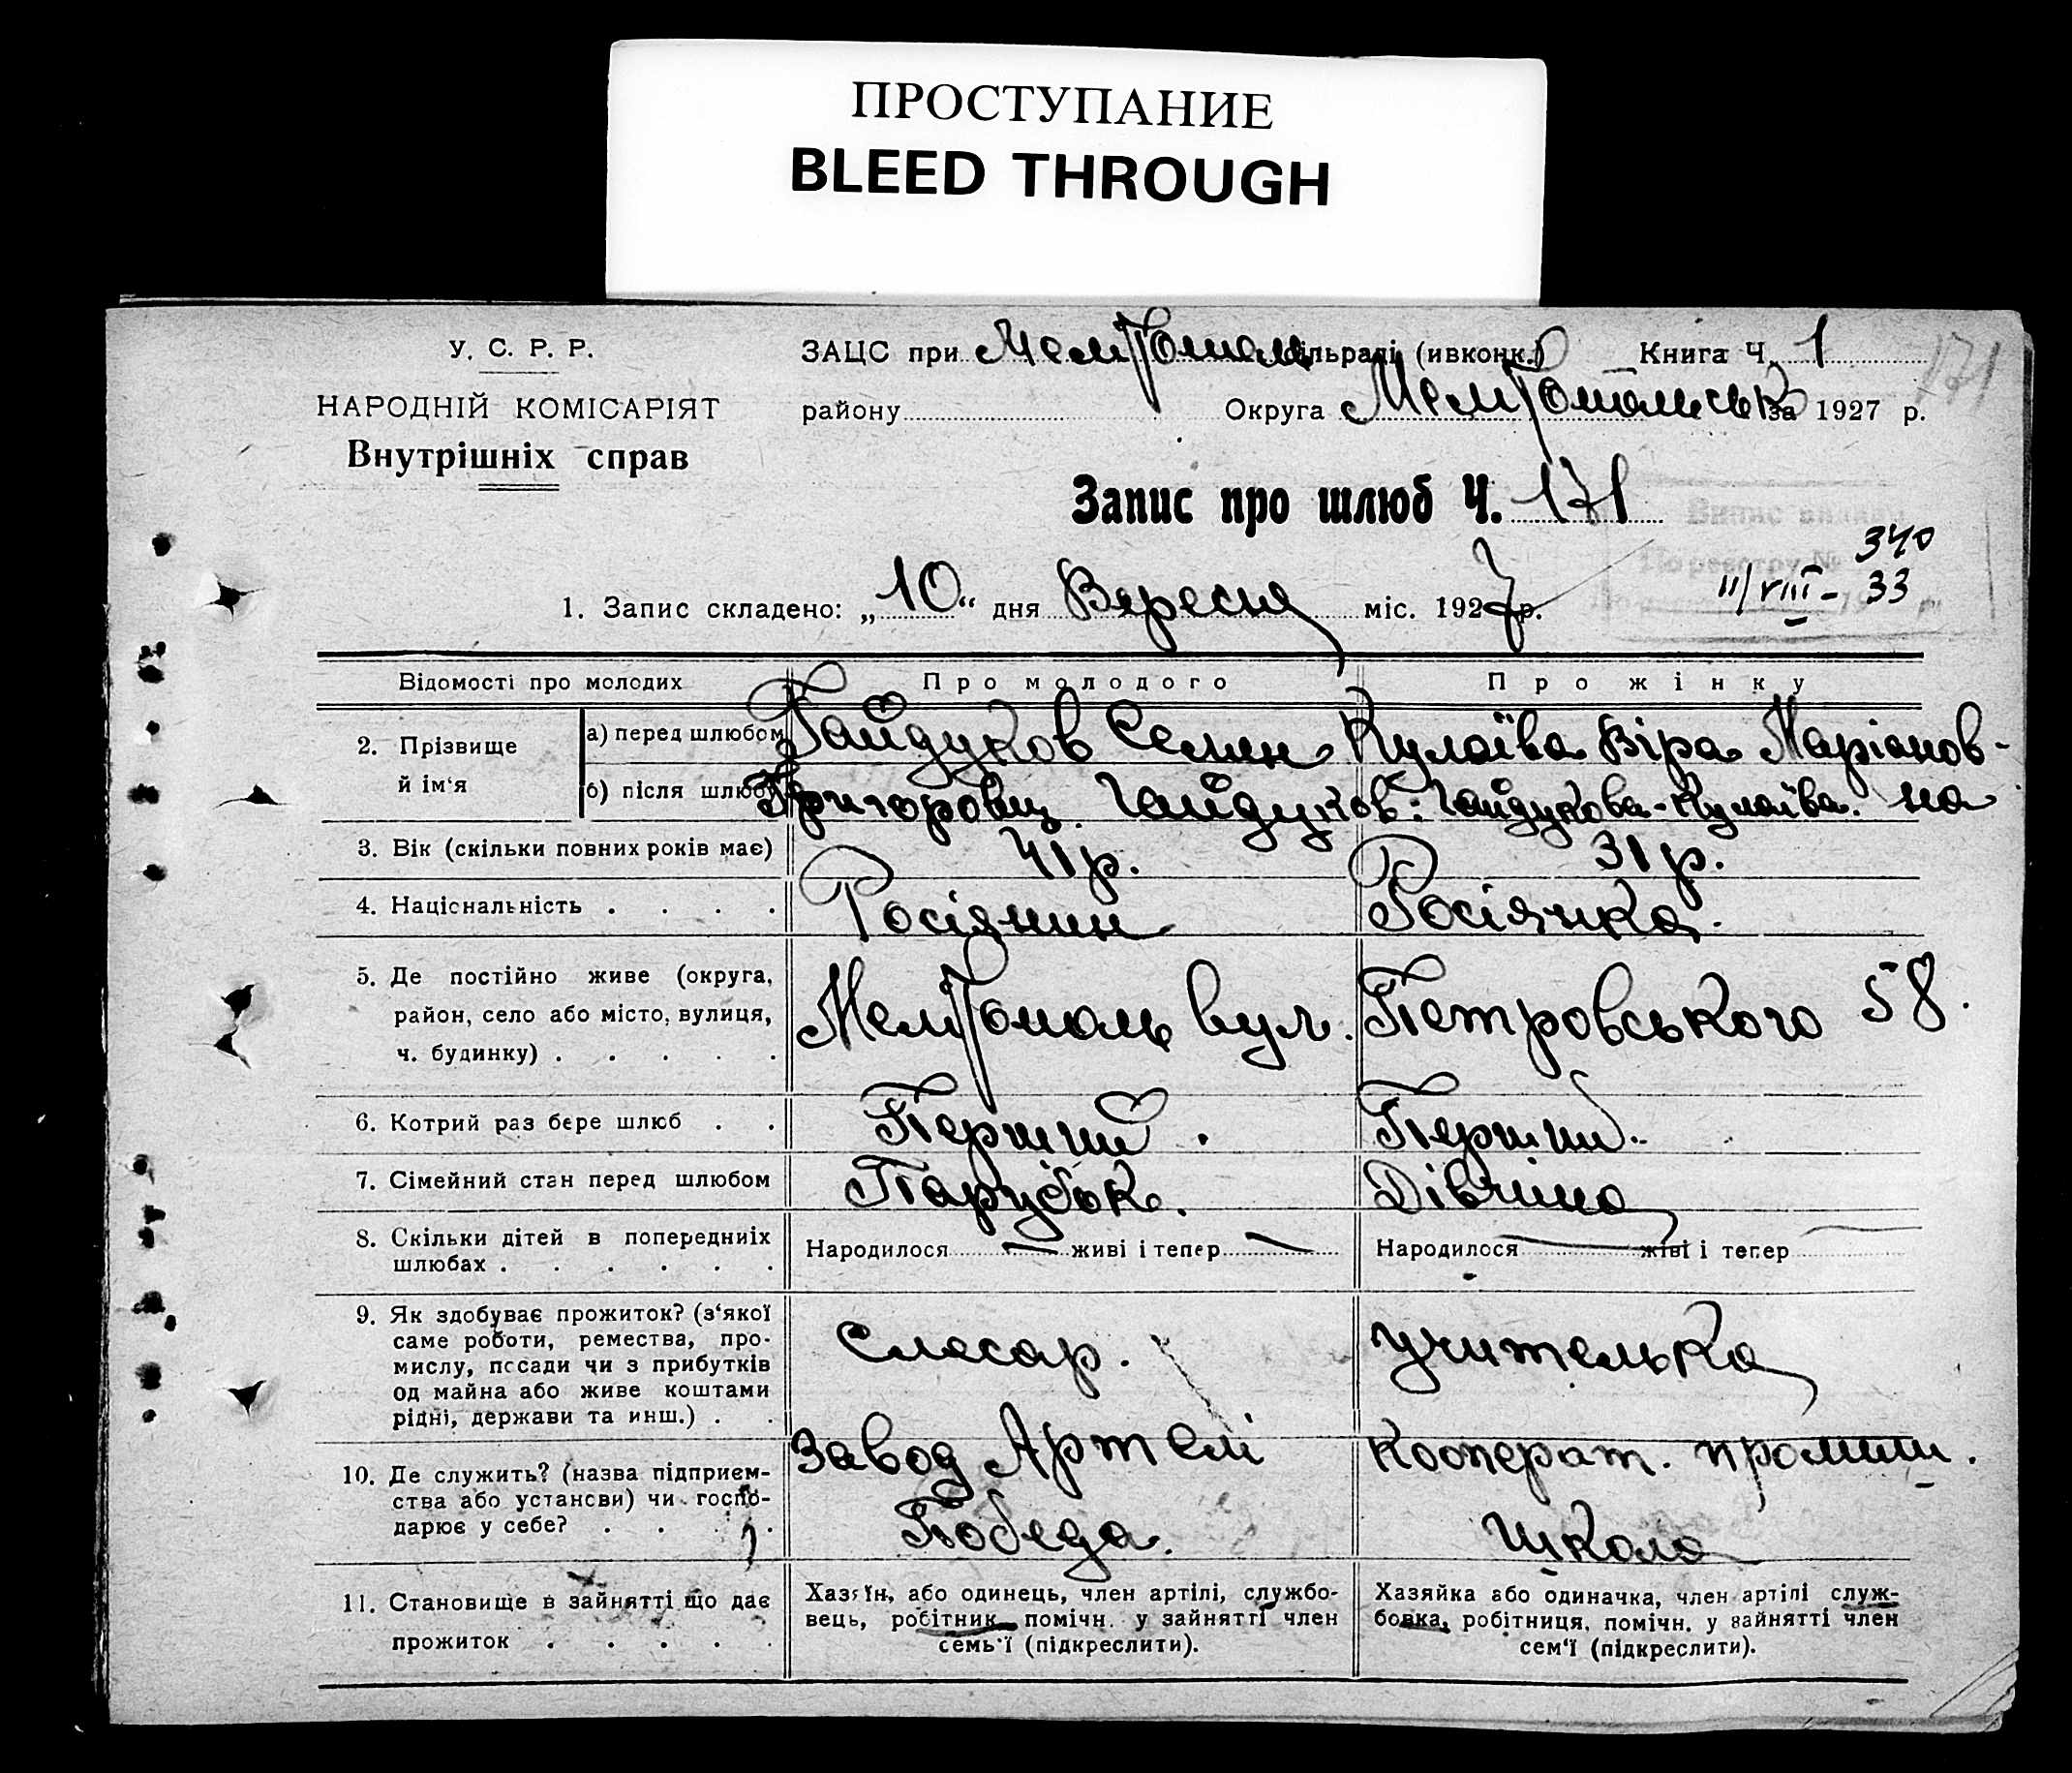 ПРОСТУПАНИЕ
BLEED THROUGH
У. С. Р. Р.
НАРОДНІЙ КОМІСАРІЯТ
Внутрішніх справ
ЗАЦС при Мелітополь сільраді (ивконк.) Книга Ч. 1
171
району Округа Мелітопольськ за 1927 р.
Запис про шлюб Ч. 171
Випис видан
По реестру № 340
11/VIII - 33
1. Запис складено: „10“ дня Вересня міс. 1927 р.
Відомості про молодих Про молодого Про жінку
2. Прізвище й ім‘я
а) перед шлюбом Гайдуков Семен Кулаїва Віра Маріанов-
б) після шлюбу Григорович Гайдуков. Гайдукова-Кулаїва. на
3. Вік (скільки повних років має) 41 р. 31 р.
4. Національність . . . . Росіянин Росіянка.
5. Де постійно живе (округа,
район, село або місто, вулиця, Мелітополь вул. Петровського 58.
ч. будинку) . . . . .
6. Котрий раз бере шлюб . . Перший. Перший.
7. Сімейний стан перед шлюбом Парубок. Дівчина
8. Скільки дітей в попередніх
шлюбах . . . . . . Народилося — живі і тепер — Народилося — живі і тепер —
9. Як здобуває прожиток? (з‘якої
саме роботи, ремества, про-
мислу, посади чи з прибутків
од майна або живе коштами
рідні, держави та инш.) . .
Слесар. учителька
10. Де служить? (назва підприєм-
ства або установи) чи госпо-
дарює у себе? . . . .
Завод Артелі
Победа.
Кооперат. промиш.
школа
11. Становище в зайнятті що дає
прожиток . . . . .
Хазяїн, або одинець, член артілі, службо-
вець, робітник помічн. у зайнятті член
семь‘ї (підкреслити).
Хазяйка або одиначка, член артілі служ-
бовка, робітниця, помічн. у зайнятті член
сем‘ї (підкреслити).